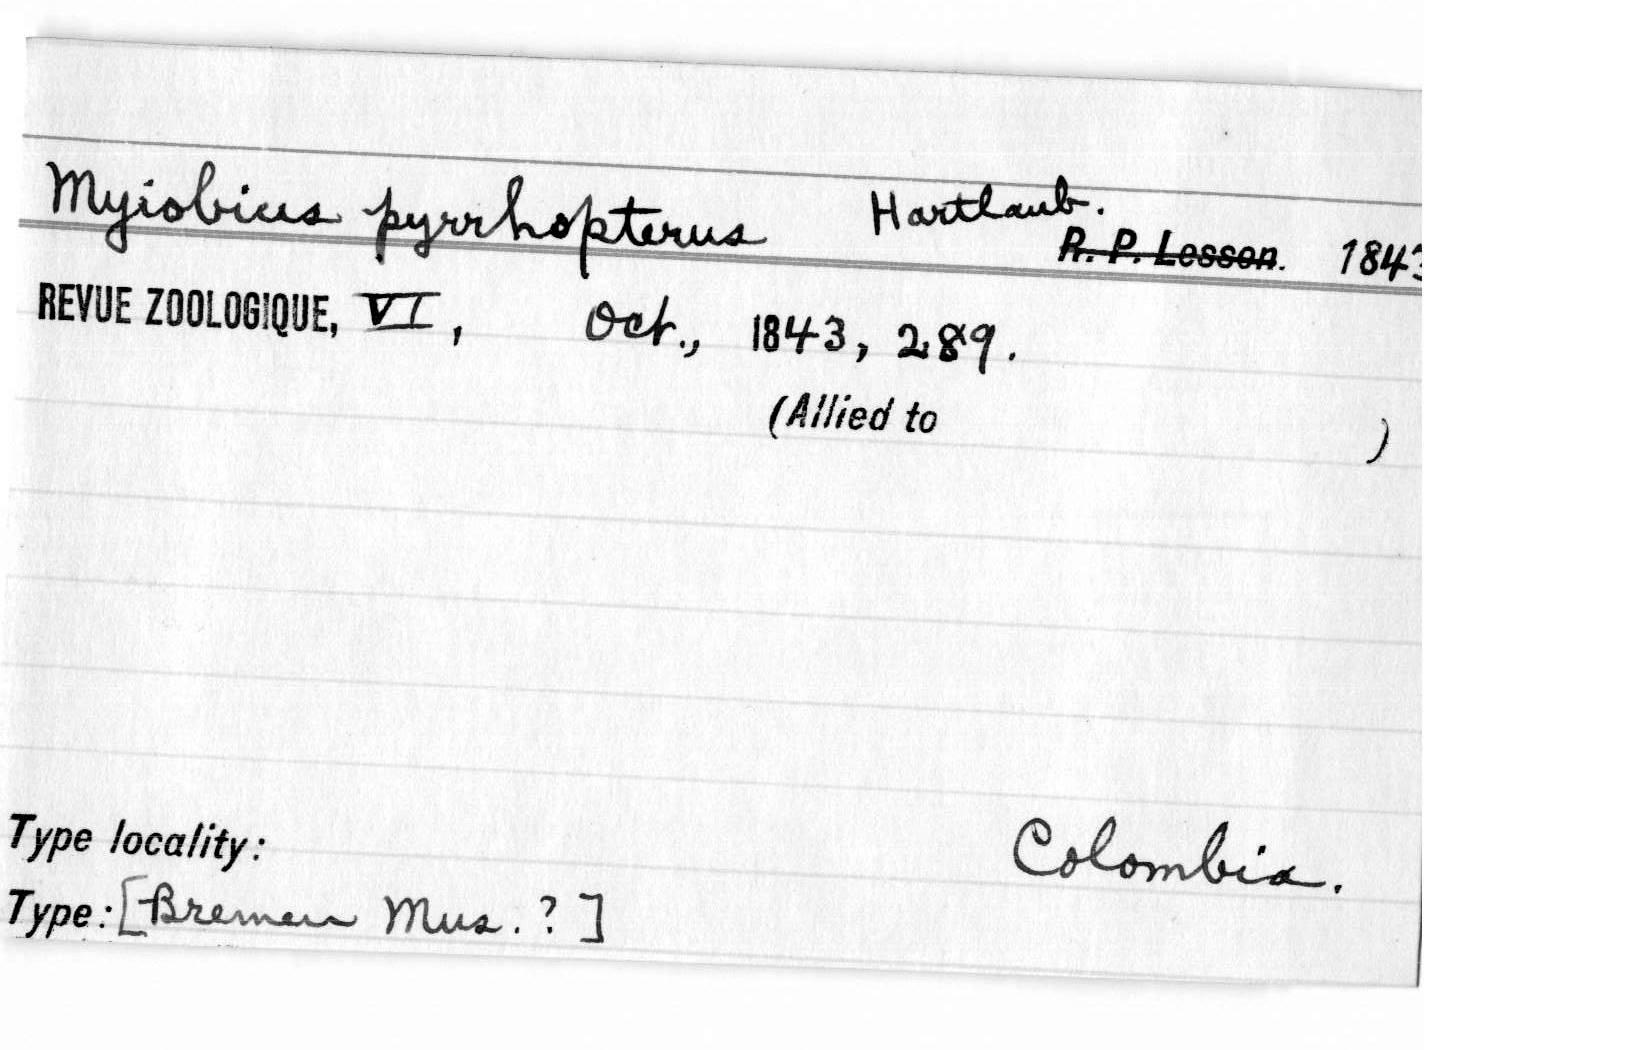 Myiobius pyrrhopterus Hartlaub.
R. P. Lesson. 1843
REVUE ZOOLOGIQUE, VI, Oct., 1843, 289.
(Allied to )
Type locality: Colombia.
Type: [Bremen Mus. ?]